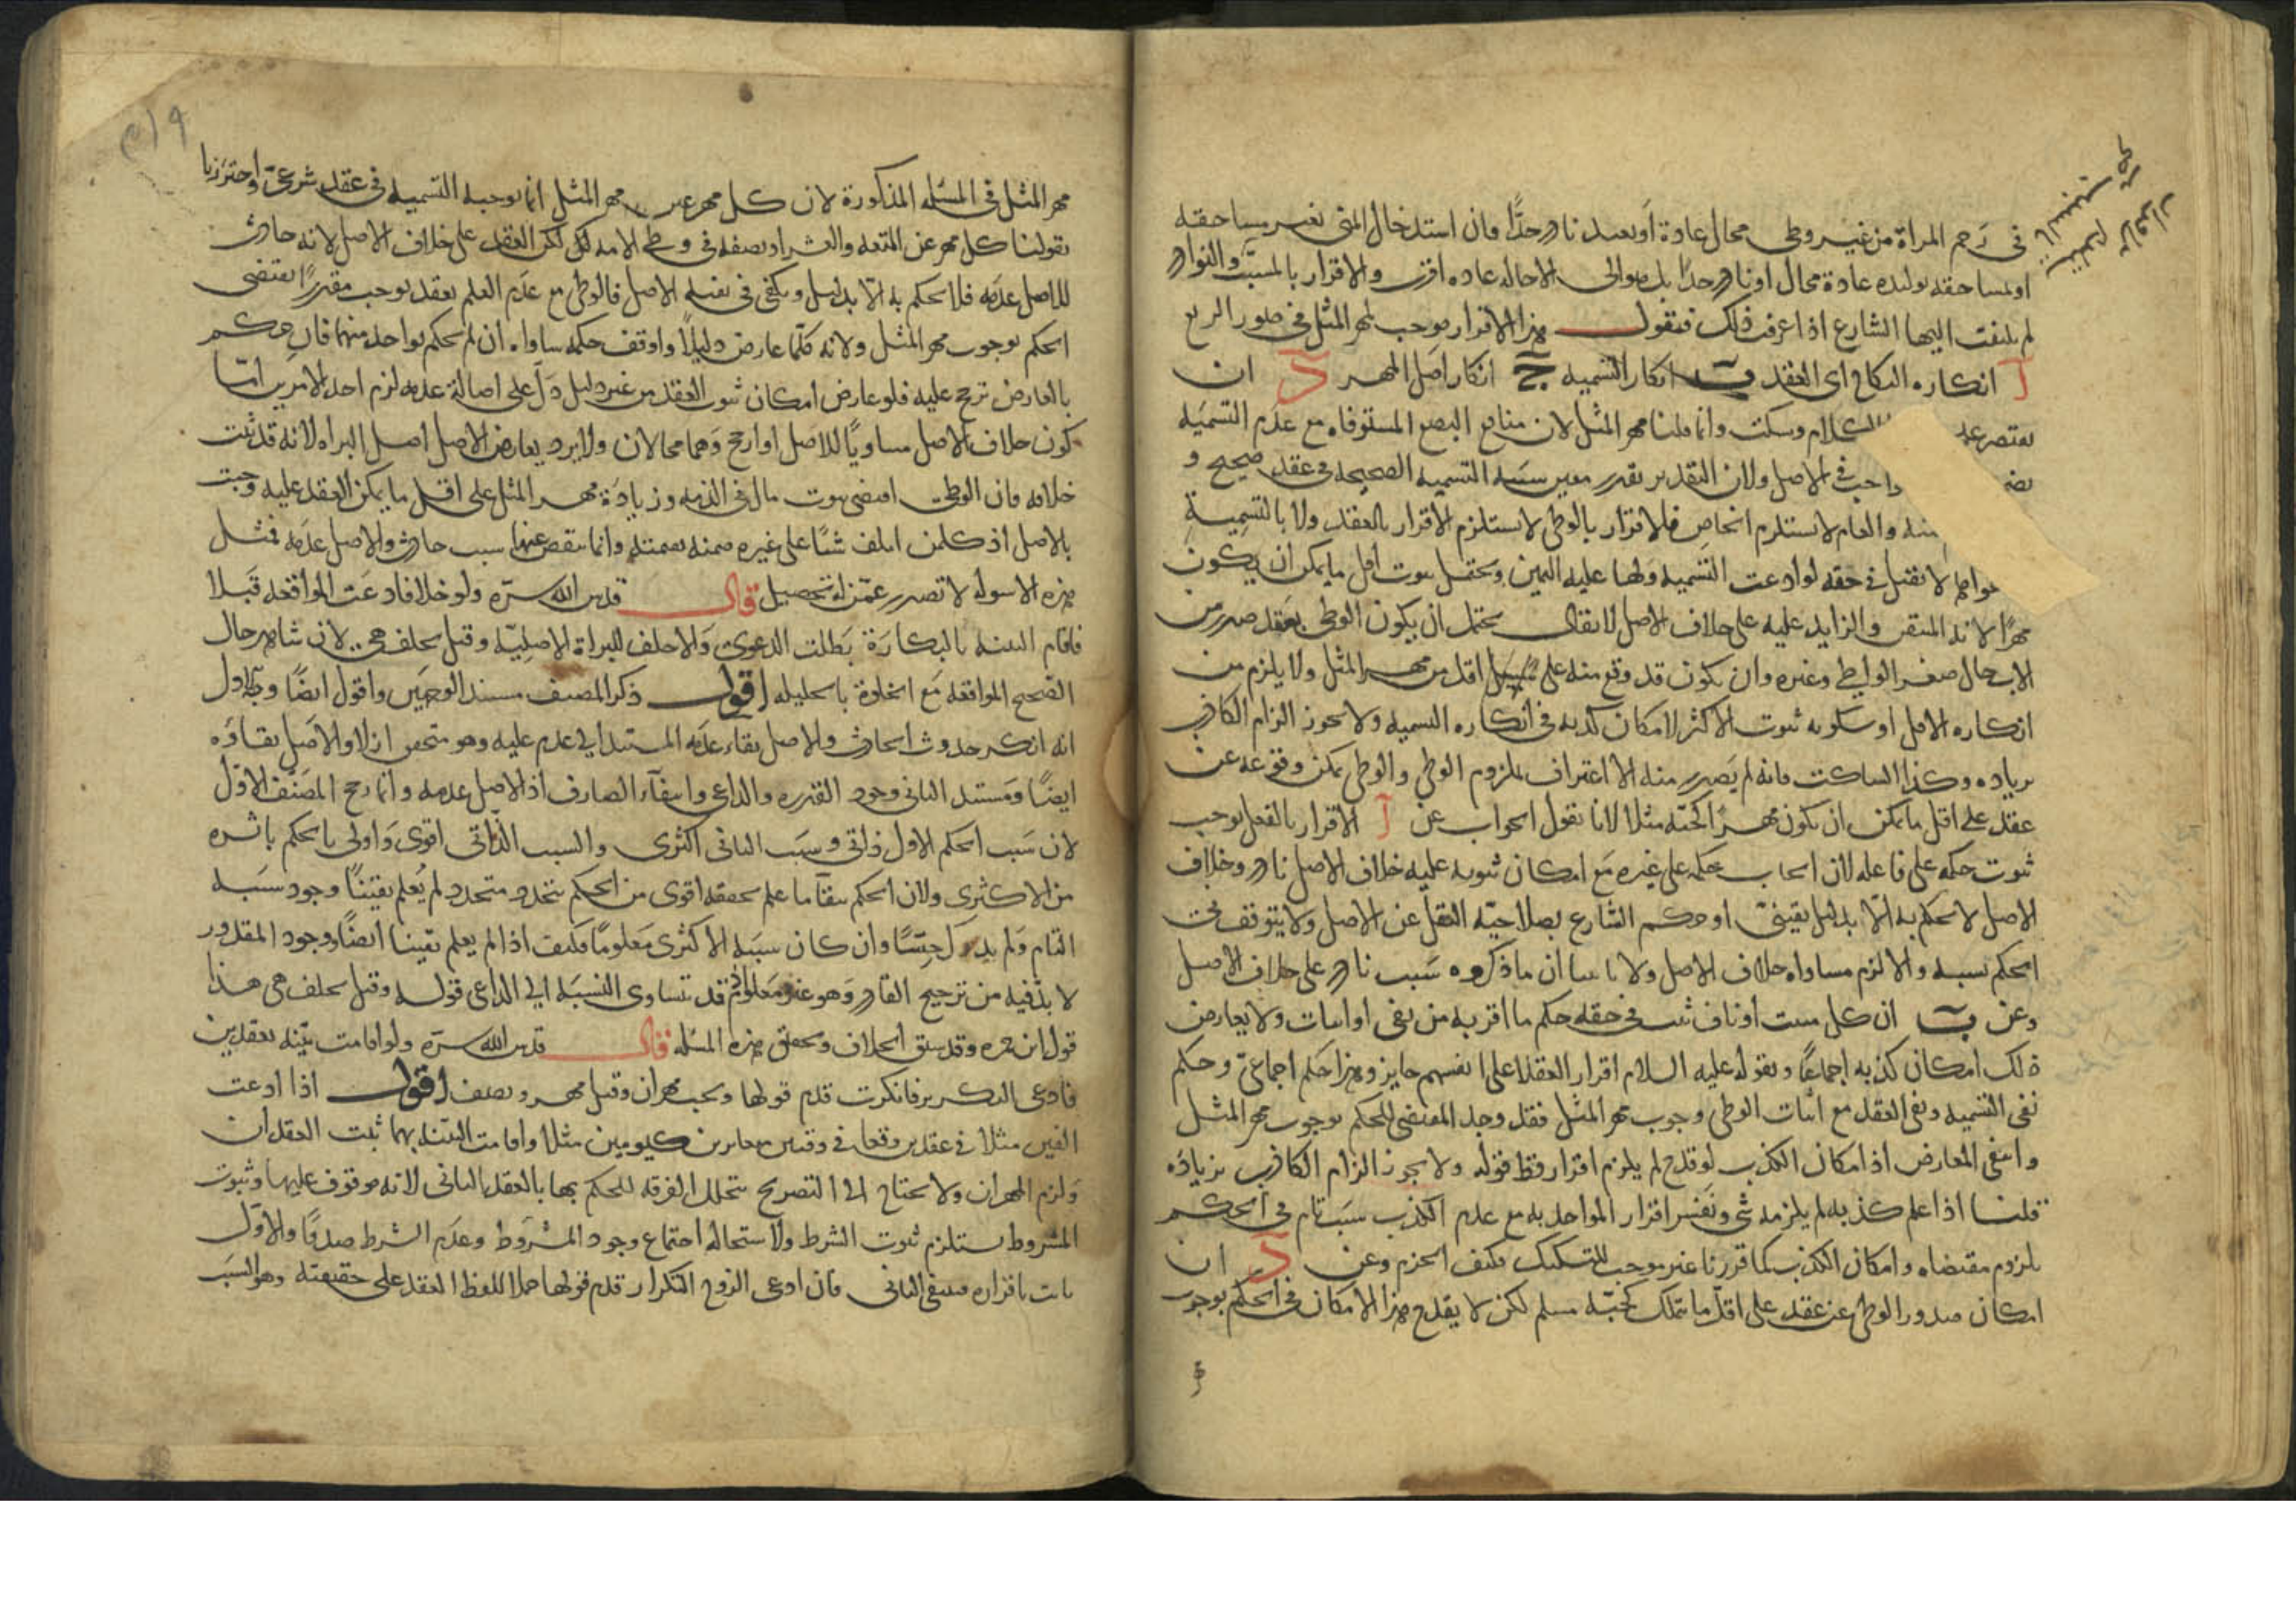 في رحم المراة من غير وطى محال عادة او بعيد نادر جدًا فان استدخال المنى بغير مساحقه
او لمساحقه تولده عادة محال او نادر جدًا بل هو الى الاحاله عاده اقرب والاقرار بالمسبّب والنوادر
لم يلتفت اليها الشارع اذا عرفت ذلك فنقول هذا الاقرار موجب لمهر المثل في صور اربع
آ انكاره النكاح اى العقد ب انكار التسميه ج انكار اصل المهر د ان
يقتصر على الكلام وسكت وانما قلنا مهر المثل لان منافع البضع المستوفاه مع عدم التسميه
في الاصل ولان التقدير بقدر معين سببه التسميه الصحيحه في عقد صحيح و
والعام لا يستلزم الخاص فالاقرار بالوطى لا يستلزم الاقرار بالعقد ولا بالتسمية
لا تقبل في حقه لو ادعت التسميه ولها عليه اليمين ويحتمل ثبوت اقل ما يمكن ان يكون
مهرًا لانه المتيقن والزايد عليه على خلاف الاصل لا يقال يحتمل ان يكون الوطى بعقد صدر من
الاب حال صغر الواطى وغيره وان يكون قد وقع منه على اقل من مهر المثل ولا يلزم من
انكاره الاقل او سكوته ثبوت الاكثر لامكان كذبه في انكاره التسميه ولا يجوز الزام الكاذب
بزياده وكذا الساكت فانه لم يصدر منه الا اعتراف بلزوم الوطى والوطى يمكن وقوعه عن
عقد على اقل ما يمكن ان يكون مهرًا كحبّه مثلا لانا نقول الجواب عن آ الاقرار بالفعل يوجب
ثبوت حكمه على فاعله لان ايجاب حكمه على غيره مع امكان ثبوته عليه خلاف الاصل نادر وخلاف
الاصل لا يحكم به الّا بدليل يقينىّ او حكم الشارع بصلاحيّه النقل عن الاصل ولا يتوقف
الحكم بسببه والا لزم مساواه خلاف الاصل ولانا بينا ان ما ذكروه سبب نادر على خلاف الاصل
وعن ب ان كل مثبت او ناف ثبت في حقه حكم ما اقر به من نفى او اثبات ولا يعارض
ذلك امكان كذبه اجماعًا وبقوله عليه السلام اقرار العقلا على انفسهم جايز وهذا حكم اجماعىّ وحكم
نفى التسميه ونفى العقد مع اثبات الوطى وجوب مهر المثل فقد وجد المقتضى للحكم بوجوب مهر المثل
وانتفى المعارض اذ امكان الكذب لو قدح لم يلزم اقرار قط قوله ولا يجوز الزام الكاذب بزياده
قلنا اذا علم كذبه لم يلزمه شى ونفس اقرار المواخد به مع عدم الكذب سبب تام في الحكم
بلزوم مقتضاه وامكان الكذب كما قررنا غير موجب للتشكيك فكيف الجزم وعن د ان
امكان صدور الوطى عن عقد على اقل ما يتملك كحبّه مسلم لكن لا يقدح هذا الامكان في الحكم بوجوب
مهر المثل في المسئله المذكورة لان كل مهر غير مهر المثل انما توجبه التسميه في عقد شرعىّ واحترزنا
بقولنا كل مهر عن المتعه والعشر او نصفه في وطى الامه لكن العقد على خلاف الاصل لانه حادث
للاصل عدمه فلا يحكم به الّا بدليل ويكفى في نفيه الاصل فالوطى مع عدم العلم بعقد يوجب مقدرًا يقتضى
الحكم بوجوب مهر المثل ولانه كلّما عارض دليلًا واوقف حكمه ساواه ان لم يحكم بواحد منهما فان حكم
بالعارض ترجح عليه فلو عارض امكان ثبوت العقد من غير دليل دلّ على اصالة عدمه لزم احد الامرين امّا
كون خلاف الاصل مساويًا للاصل او ارجح وهما محالان ولا يرد يعارض الاصل اصل البراه لانه قد ثبت
خلافه فان الوطى اقتضى ثبوت مال في الذمه وزيادة مهر المثل على اقل ما يمكن العقد عليه وجبت
بالاصل اذ كل من اتلف شيًا على غيره ضمنه بقيمته وانما ينقص عنها بسبب حادث والاصل عدمه فمثل
هذه الاسوله لا تصدر عمّن له تحصيل قال قدس الله سرّه ولو خلا فادعت المواقعه قبلا
فاقام البينه بالبكارة بطلت الدعوى والا حلف للبراة الاصليّه وقيل يحلف هى لان شاهد حال
الصحيح المواقعه مع الخلوة بالحليله اقول ذكر المصنف مستند الوجهين واقول ايضًا وجه الاول
انه انكر حدوث الحادث والاصل بقاء عدمه المستند الى عدم عليه وهو متحقق ازلا والاصل بقاؤه
ايضًا ومستند الثانى وجود القدره والداعى وانتفآء الصارف اذ الاصل عدمه وانما رجح المصنّف الاوّل
لان سبب الحكم الاول ذاتى وسبب الثانى اكثرى والسبب الذاتى اقوى واولى بالحكم باثره
من الاكثرى ولان الحكم ببقآ ما علم تحققه اقوى من الحكم بتجدد متجدد لم يُعلم يقينًا وجود سببه
التام ولم يدرك حسًا وان كان سببه الاكثرى معلومًا فكيف اذا لم يعلم يقينا ايضًا وجود المقدور
لا بدّ فيه من ترجيح القادر وهو غير معلوم قد تتساوى النسبه الى الداعى قوله وقيل يحلف هى هذا
قول ابن حمزه وقد سبق الخلاف وتحقيق هذه المسئله قال قدس الله سرّه ولو اقامت بيّنه بعقدين
فادعى التكرير فانكرت قدم قولها ويجب مهران وقيل مهر ونصف اقول اذا ادعت
الفين مثلا في عقدين وقعا في وقتين متغايرين كيومين مثلا واقامت البينه بهما ثبت العقدان
ولزم المهران ولا يحتاج الى التصريح بتخلل الفرقه للحكم بها بالعقد الثانى لانه موقوف عليها وثبوت
المشروط يستلزم ثبوت الشرط ولاستحاله اجتماع وجود المشروط وعدم الشرط صدقًا والاوّل
ثابت باقراره فينتفى الثانى فان ادعى الزوج التكرار قدم قولها حملا للفظ العقد على حقيقته وهو السبب